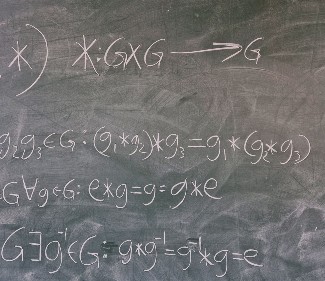 *) *:G×G→G
g₂g₃∈G: (g₁*g₂)*g₃=g₁*(g₂*g₃)
G∀g∈G: e*g=g=g*e
G∃g⁻¹∈G: g*g⁻¹=g⁻¹*g=e